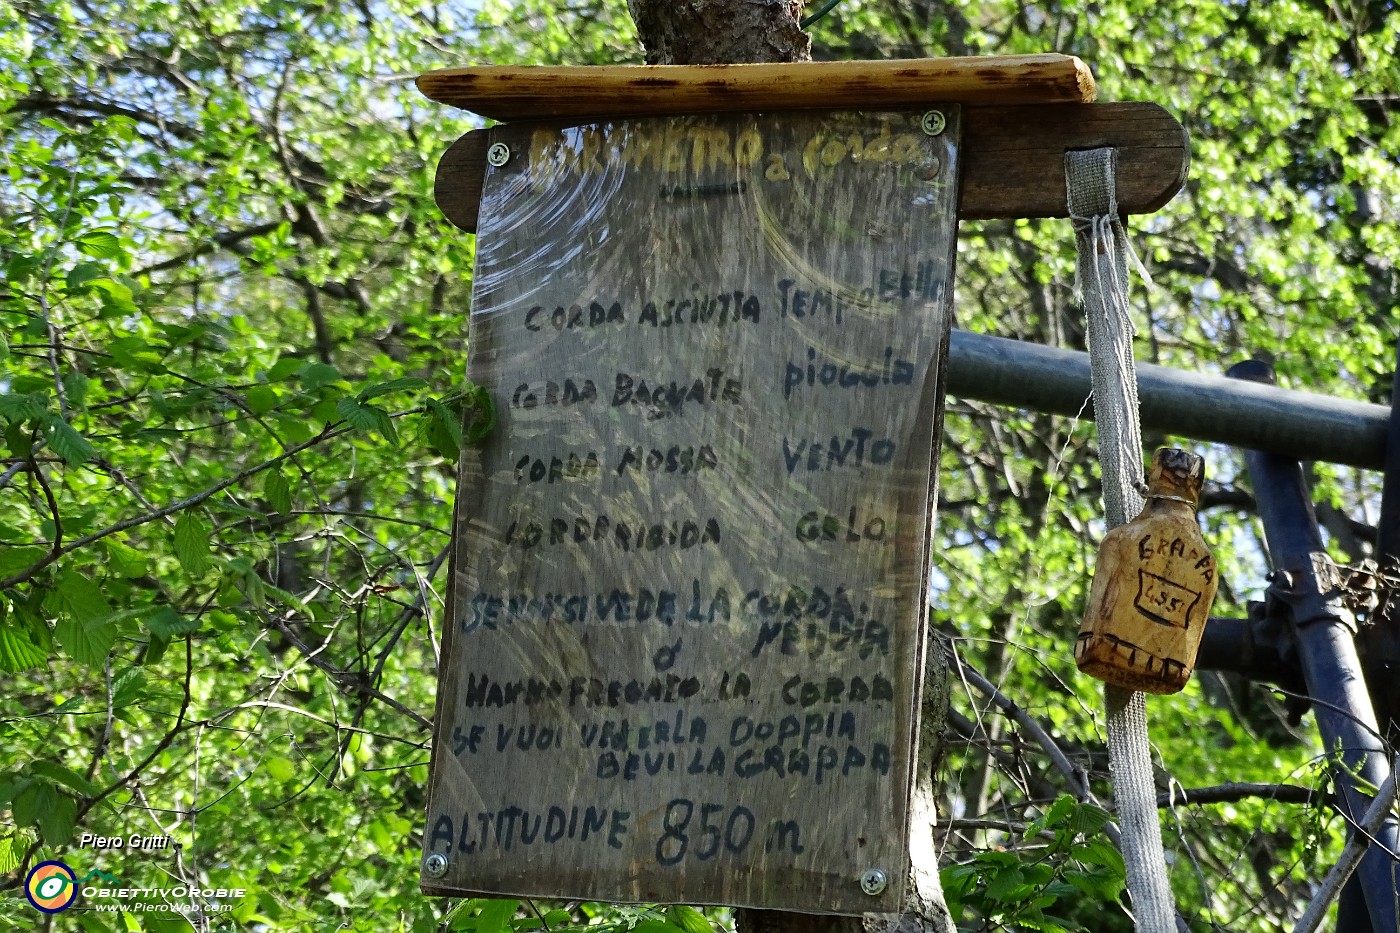 BAROMETRO a Corda
CORDA ASCIUTTA TEMPO BELLO
CORDA BAGNATE pioggia
CORDA MOSSA VENTO
CORDA RIGIDA GELO
SE NON SI VEDE LA CORDA
NEBBIA
O'
HANNO FREGATO LA CORDA
SE VUOI VEDERLA DOPPIA
BEVI LA GRAPPA
ALTITUDINE 850 m
GRAPPA
Piero Gritti
OBIETTIVOROBIE
www.PieroWeb.com